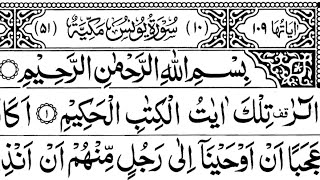 اٰیَاتُهَا ١٠٩ (١٠) سُوْرَةُ يُوْنُسَ مَكِّيَّةٌ (٥١)
بِسْمِ اللّٰهِ الرَّحْمٰنِ الرَّحِيْمِ
الٓرٰ قف تِلْكَ اٰيٰتُ الْكِتٰبِ الْحَكِيْمِ ١ اَكَا
عَجَبًا اَنْ اَوْحَيْنَآ اِلٰى رَجُلٍ مِّنْهُمْ اَنْ اَنْذِ